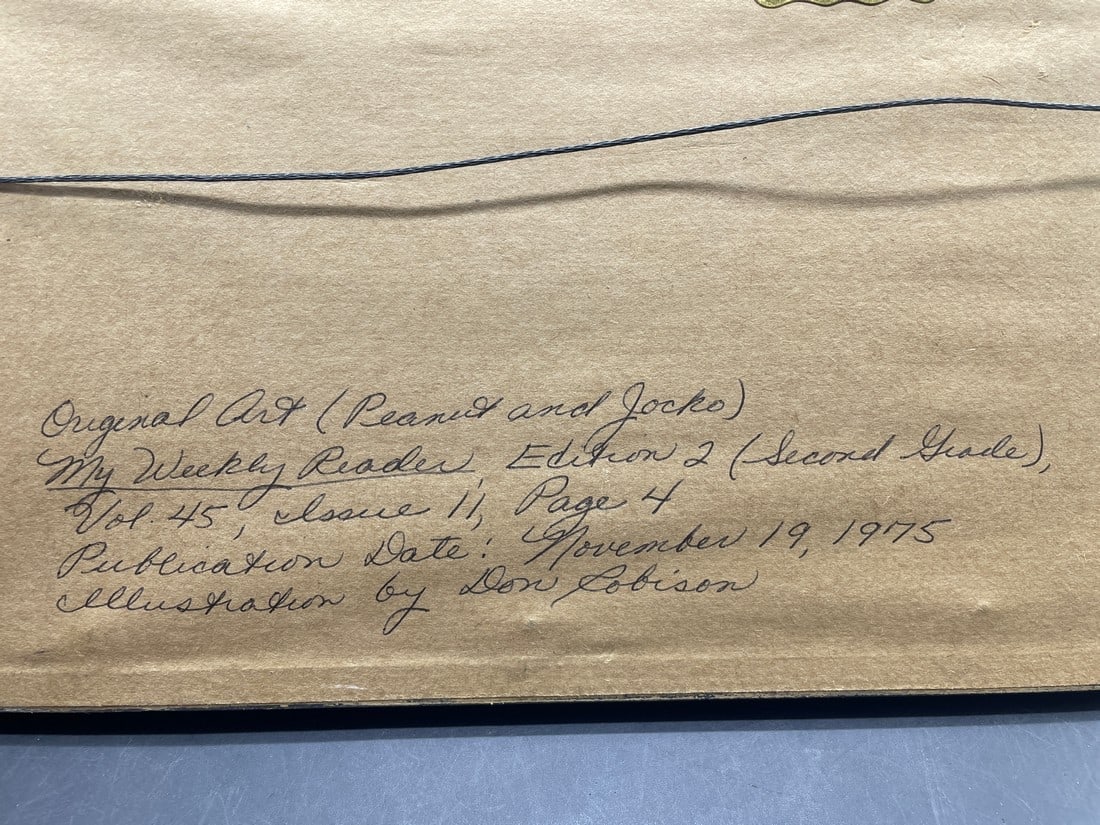 Original Art (Peanut and Jocko)
My Weekly Reader, Edition 2 (Second Grade),
Vol. 45, Issue 11, Page 4
Publication Date: November 19, 1975
Illustration by Don Robison